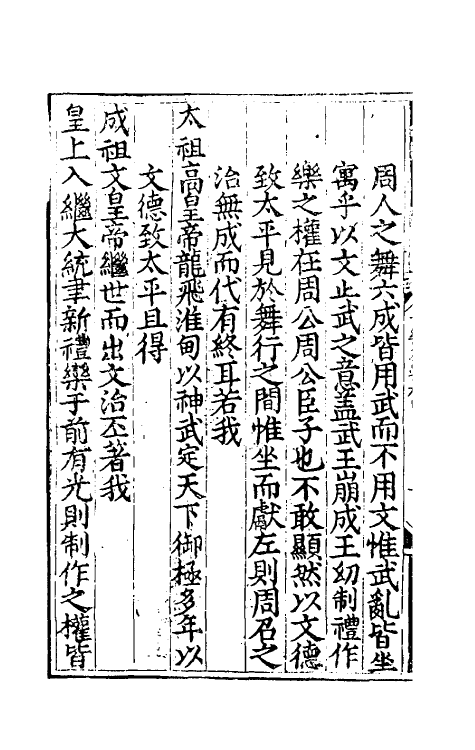 周人之舞六成皆用武而不用文惟武亂皆坐
寓乎以文止武之意盖武王崩成王幼制禮作
樂之權在周公周公臣子也不敢顯然以文德
致太平見於舞行之間惟坐而獻左則周召之
治無成而代有終耳若我
太祖高皇帝龍飛淮甸以神武定天下御極多年以
文德致太平且得
成祖文皇帝繼世而出文治丕著我
皇上入繼大統聿新禮樂于前有光則制作之權皆